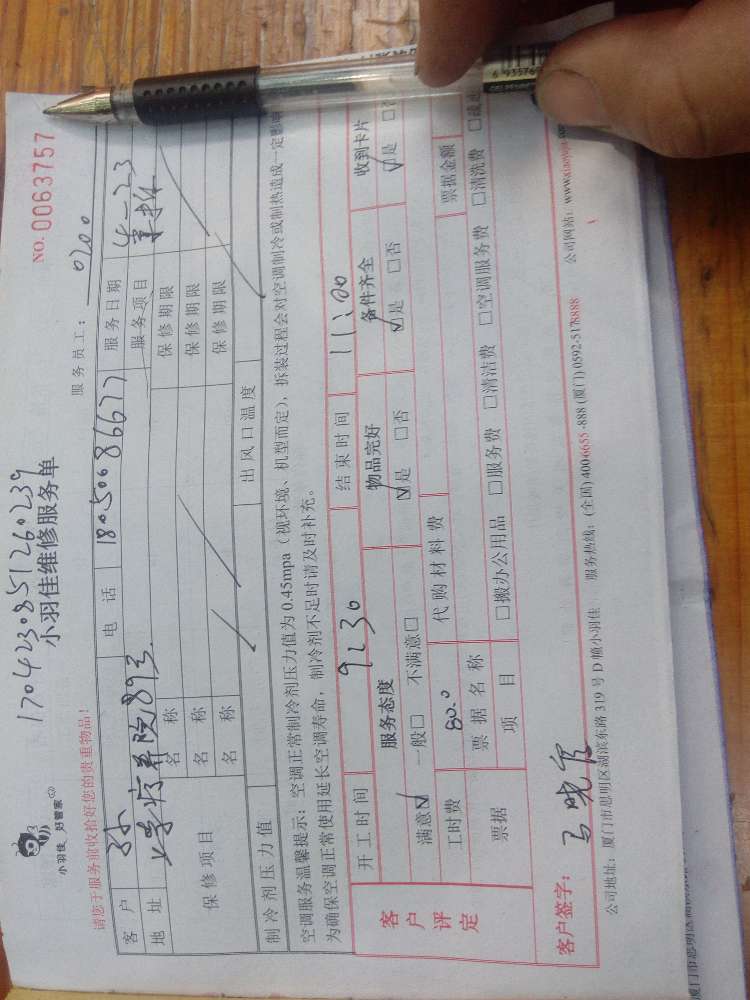 1704230851260239
小羽佳 好管家
小羽佳维修服务单
NO. 0063757
请您于服务前收拾好您的贵重物品!
服务员工: 0200
客户 电话 18050086677 服务日期 4-23
地址 疗养院89号 服务项目
保修项目 名称 保修期限
名称 保修期限
名称 保修期限
制冷剂压力值 出风口温度
空调服务温馨提示: 空调正常制冷剂压力值为0.45mpa(视环境、机型而定), 拆装过程会对空调制冷或制热造成一定影响
为确保空调正常使用延长空调寿命, 制冷剂不足时请及时补充。
客户评定 开工时间 9:30 结束时间 11:00
服务态度 物品完好 备件齐全 收到卡片
满意☑ 一般□ 不满意□ ☑是 □否 ☑是 □否 ☑是
工时费 80.0 代购材料费 票据金额
票据 票据名称
项目 □搬办公用品 □服务费 □清洁费 □空调服务费 □清洗费
客户签字:
公司地址: 厦门市思明区湖滨东路319号D幢小羽佳 服务热线: (全国)4006655-888 (厦门)0592-5178888 公司网站: www.xiaoyujia.com
6 935769